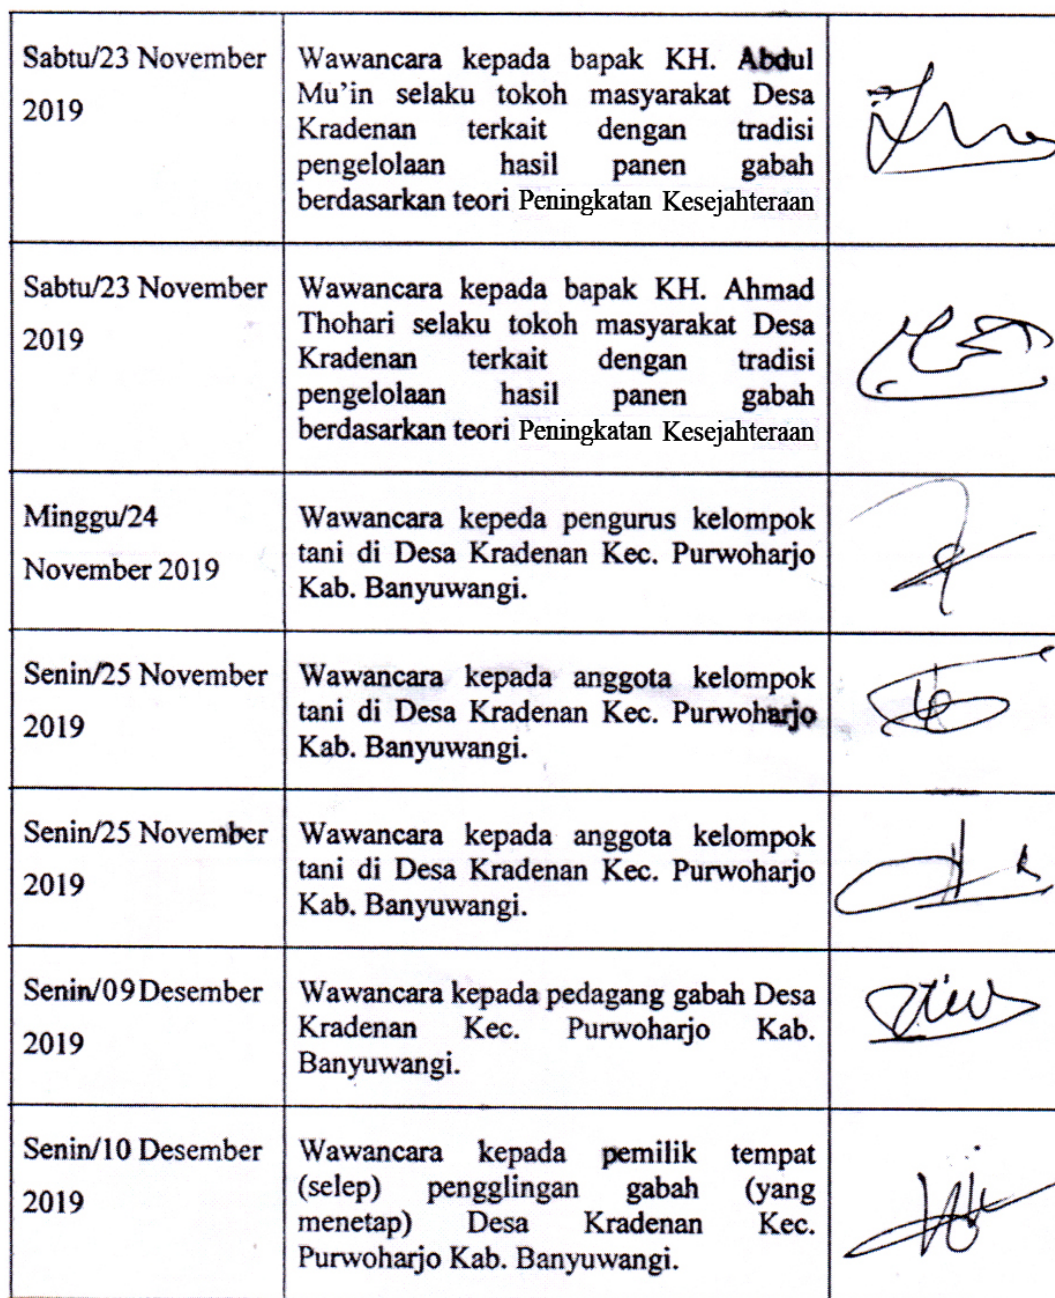 Sabtu/23 November
2019
Wawancara kepada bapak KH. Abdul
Mu'in selaku tokoh masyarakat Desa
Kradenan terkait dengan tradisi
pengelolaan hasil panen gabah
berdasarkan teori Peningkatan Kesejahteraan
Sabtu/23 November
2019
Wawancara kepada bapak KH. Ahmad
Thohari selaku tokoh masyarakat Desa
Kradenan terkait dengan tradisi
pengelolaan hasil panen gabah
berdasarkan teori Peningkatan Kesejahteraan
Minggu/24
November 2019
Wawancara kepeda pengurus kelompok
tani di Desa Kradenan Kec. Purwoharjo
Kab. Banyuwangi.
Senin/25 November
2019
Wawancara kepada anggota kelompok
tani di Desa Kradenan Kec. Purwoharjo
Kab. Banyuwangi.
Senin/25 November
2019
Wawancara kepada anggota kelompok
tani di Desa Kradenan Kec. Purwoharjo
Kab. Banyuwangi.
Senin/09 Desember
2019
Wawancara kepada pedagang gabah Desa
Kradenan Kec. Purwoharjo Kab.
Banyuwangi.
Senin/10 Desember
2019
Wawancara kepada pemilik tempat
(selep) pengglingan gabah (yang
menetap) Desa Kradenan Kec.
Purwoharjo Kab. Banyuwangi.